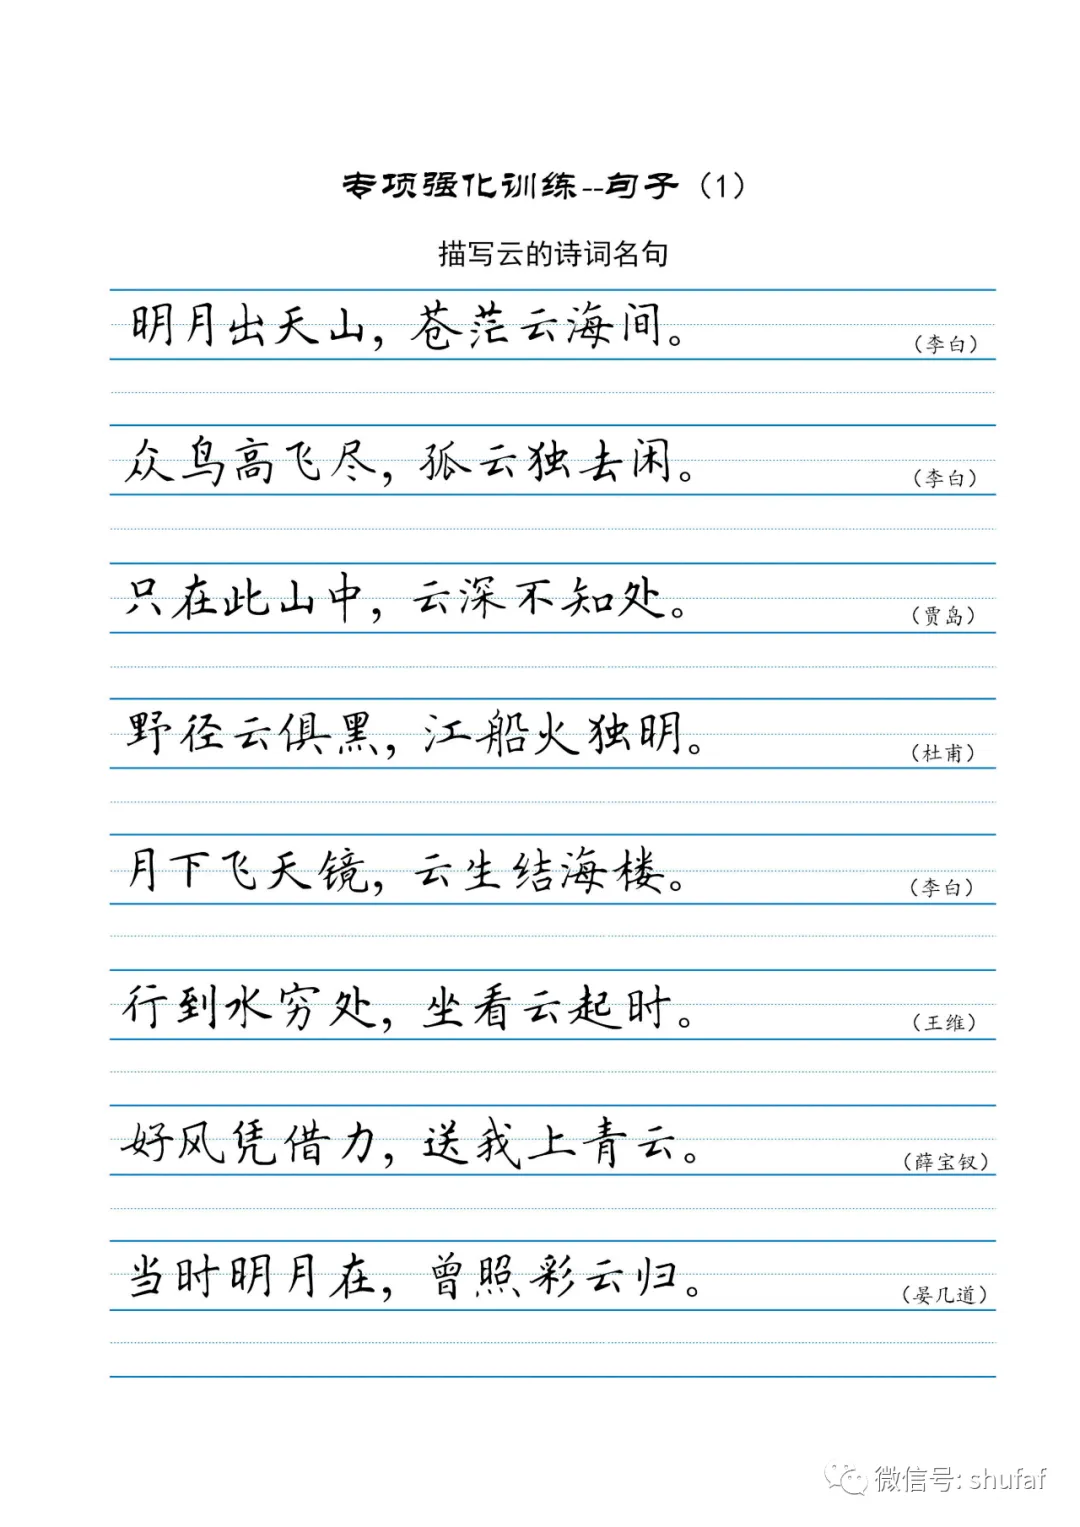 专项强化训练--句子（1）
描写云的诗词名句
明月出天山，苍茫云海间。（李白）
众鸟高飞尽，孤云独去闲。（李白）
只在此山中，云深不知处。（贾岛）
野径云俱黑，江船火独明。（杜甫）
月下飞天镜，云生结海楼。（李白）
行到水穷处，坐看云起时。（王维）
好风凭借力，送我上青云。（薛宝钗）
当时明月在，曾照彩云归。（晏几道）
微信号: shufaf